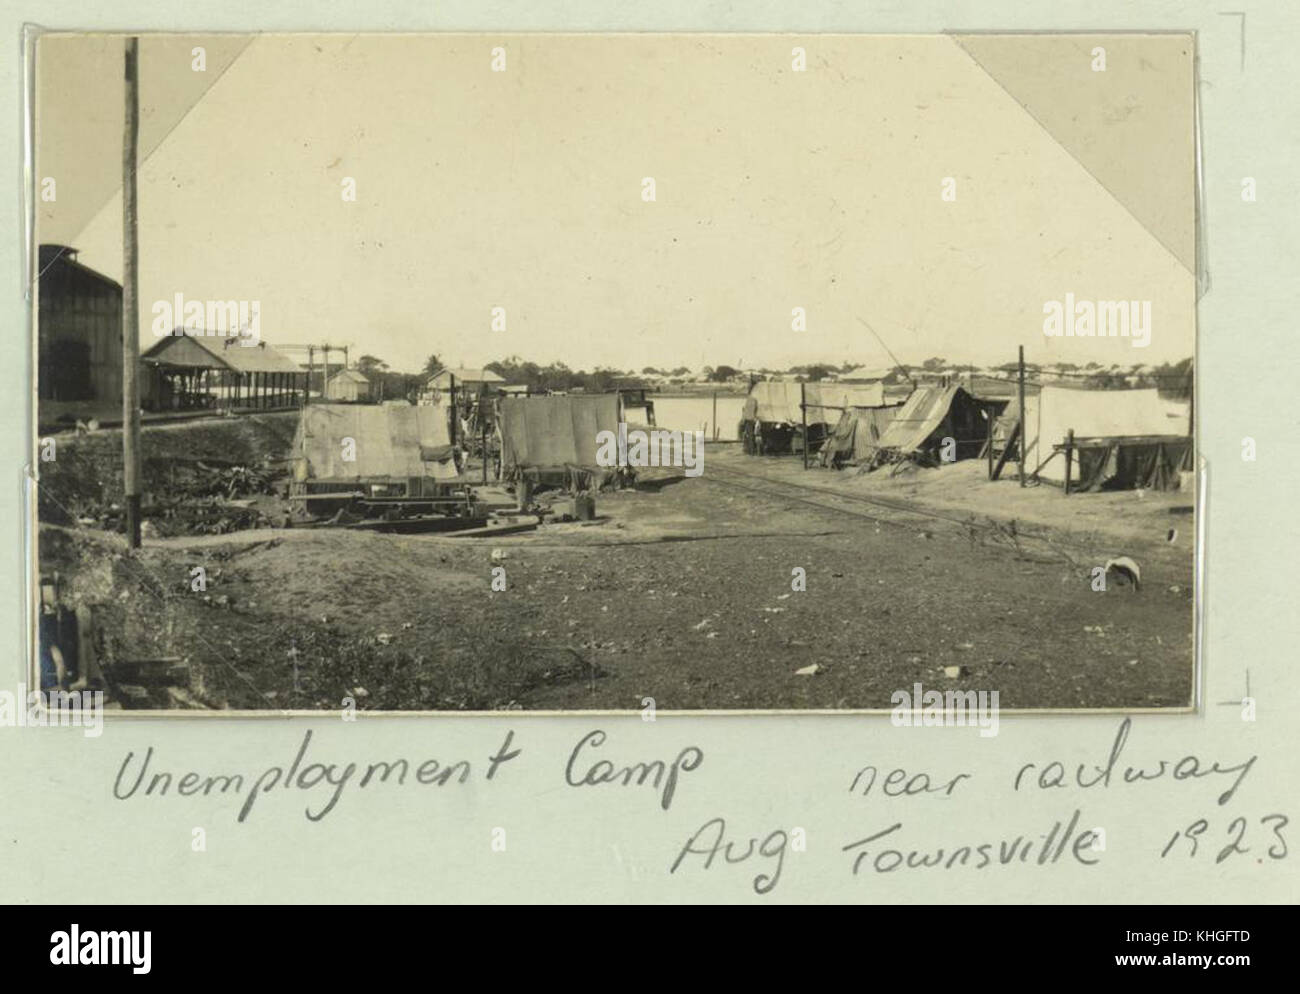 Unemployment Camp near railway
Aug Townsville 1923
alamy
alamy
alamy
alamy
alamy
Image ID: KHGFTD
www.alamy.com